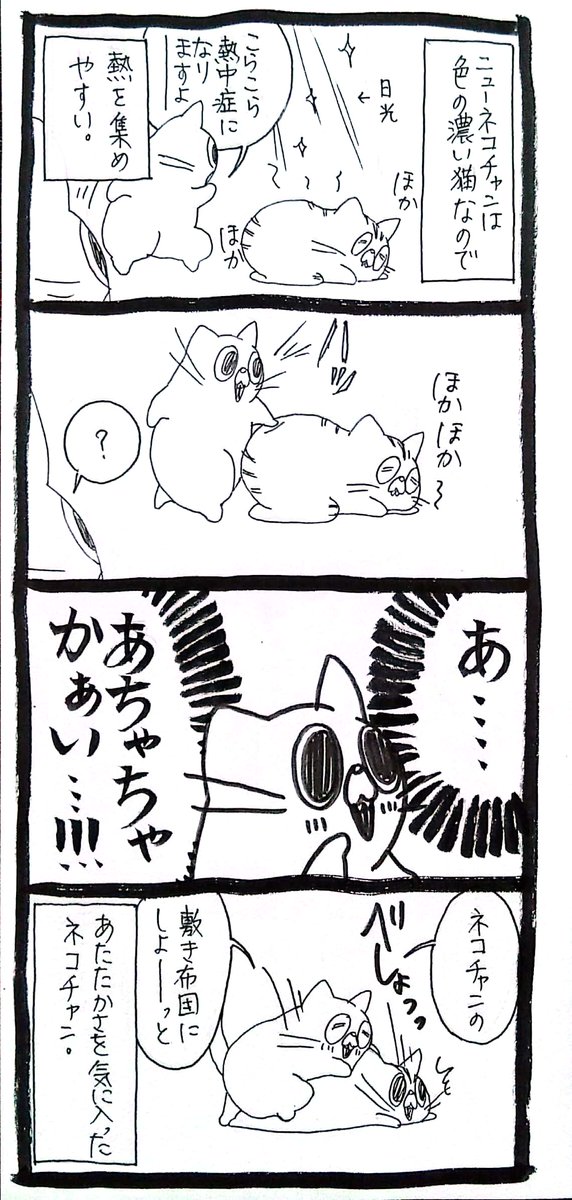 ニューネコチャンは
色の濃い猫なので
←日光
ほか
ほか
こらこら
熱中症に
なり
ますよ
熱を集め
やすい。
ほかほか〜
?
あ……
あちゃちゃ
かぁい…!!!
ネコチャンの
べしょっっ
敷き布団に
しよーーっと
あたたかさを気に入った
ネコチャン。